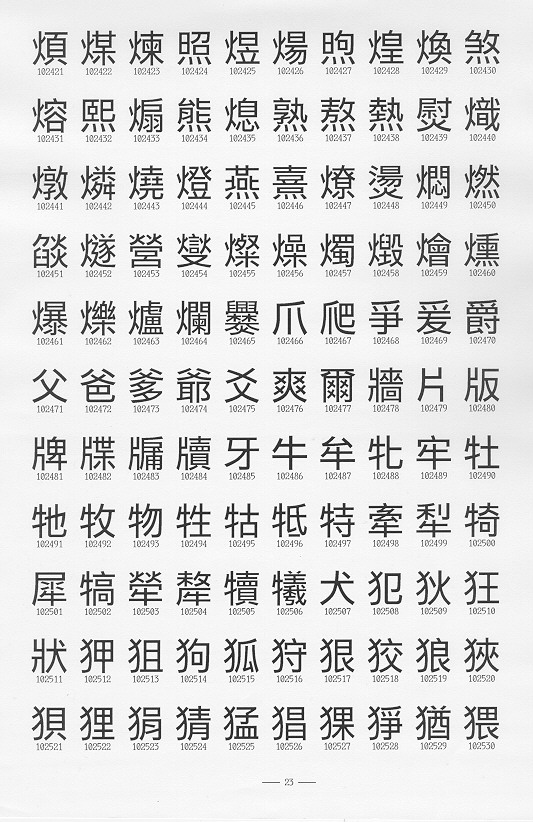 煩 煤 煉 照 煜 煬 煦 煌 煥 煞
102421 102422 102423 102424 102425 102426 102427 102428 102429 102430
熔 熙 煽 熊 熄 熟 熬 熱 熨 熾
102431 102432 102433 102434 102435 102436 102437 102438 102439 102440
燉 燐 燒 燈 燕 熹 燎 燙 燜 燃
102441 102442 102443 102444 102445 102446 102447 102448 102449 102450
燄 燧 營 燮 燦 燥 燭 燬 燴 燻
102451 102452 102453 102454 102455 102456 102457 102458 102459 102460
爆 爍 爐 爛 爨 爪 爬 爭 爰 爵
102461 102462 102463 102464 102465 102466 102467 102468 102469 102470
父 爸 爹 爺 爻 爽 爾 牆 片 版
102471 102472 102473 102474 102475 102476 102477 102478 102479 102480
牌 牒 牖 牘 牙 牛 牟 牝 牢 牡
102481 102482 102483 102484 102485 102486 102487 102488 102489 102490
牠 牧 物 牲 牯 牴 特 牽 犁 犄
102491 102492 102493 102494 102495 102496 102497 102498 102499 102500
犀 犒 犖 犛 犢 犧 犬 犯 狄 狂
102501 102502 102503 102504 102505 102506 102507 102508 102509 102510
狀 狎 狙 狗 狐 狩 狠 狡 狼 狹
102511 102512 102513 102514 102515 102516 102517 102518 102519 102520
狽 狸 狷 猜 猛 猖 猓 猙 猶 猥
102521 102522 102523 102524 102525 102526 102527 102528 102529 102530
— 23 —